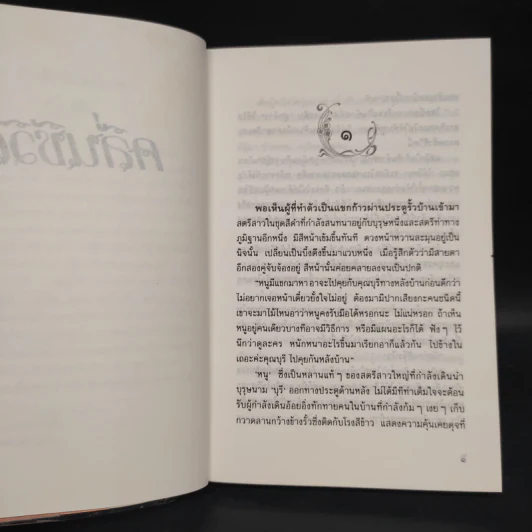 คลื่นชีวิต
๑
พอเห็นผู้ที่ทำตัวเป็นแขกก้าวผ่านประตูรั้วบ้านเข้ามา
สตรีสาวในชุดสีดำที่กำลังสนทนาอยู่กับบุรุษหนึ่งและสตรีท่าทาง
ภูมิฐานอีกหนึ่ง มีสีหน้าเข้มขึ้นทันที ดวงหน้าหวานละมุนอยู่เป็น
นิจนั้น เปลี่ยนเป็นบึ้งตึงขึ้นมาแวบหนึ่ง เมื่อรู้สึกตัวว่ามีสายตา
อีกสองคู่จับจ้องอยู่ สีหน้านั้นค่อยคลายลงจนเป็นปกติ
"หนูมีแขกมาหา อาจะไปคุยกับคุณบุรีทางหลังบ้านก่อนดีกว่า
ไม่อยากเจอหน้าเดี๋ยวยั้งใจไม่อยู่ ต้องมามีปากเสียงกะคนชนิดนี้
เขาจะมาไม้ไหนอาว่าหนูคงรับมือได้หรอกนะ ไม่แน่หรอก ถ้าเห็น
หนูอยู่คนเดียวบางทีอาจมีวิธีการ หรือมีแผนอะไรก็ได้ ฟัง ๆ ไว้
นึกว่าดูละคร หนักหนาอะไรขึ้นมาเรียกอาก็แล้วกัน ไปข้างใน
เถอะค่ะคุณบุรี ไปคุยกันหลังบ้าน"
'หนู' ซึ่งเป็นหลานแท้ ๆ ของสตรีสาวใหญ่ที่กำลังเดินนำ
บุรุษนาม 'บุรี' ออกทางประตูด้านหลัง ไม่ได้มีทีท่าเต็มใจจะต้อน
รับผู้กำลังเดินอ้อยอิ่งทักทายคนในบ้านที่กำลังก้ม ๆ เงย ๆ เก็บ
กวาดลานกว้างข้างรั้วซึ่งติดกับโรงสีข้าว แสดงความคุ้นเคยดุจที่